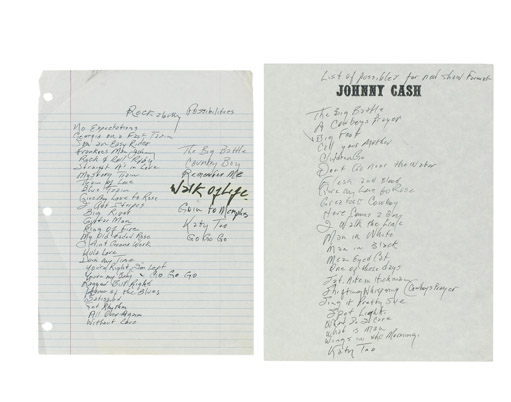 Rockabilly Possibilities
No Expectations
Georgia on a Fast Train
I'm an Easy Rider
Frankies Man
Rock & Roll Ruby
Straight A's in Love
Mystery Train
Train of Love
Blue Train
Give My Love to Rose
I Got Stripes
Big River
Guitar Man
Ring of Fire
My Old Faded Rose
Hula Love
Doin My Time
You're Right I'm Left
You're My Baby Go Go Go
Rugged But Right
Home of the Blues
Get Rhythm
All Over Again
Without Love
The Big Battle
Country Boy
Remember Me
Walk Of Life
Goin to Memphis
Katy Too
Go Go Go
List of possibles for new show format
JOHNNY CASH
The Big Battle
A Cowboys Prayer
Big Foot
Call your Mother
Dont Go near the Water
Flesh and Blood
Give My Love to Rose
Greatest Cowboy
Here Comes a Boy
I Walk the Line
Man in White
Man in Black
Mean Eyed Cat
One of these days
Sgt.
Drifting Whispering Cowboys Prayer
Sing it Pretty Sue
Spot Light
What is Man
Wings in the Morning.
Katy Too